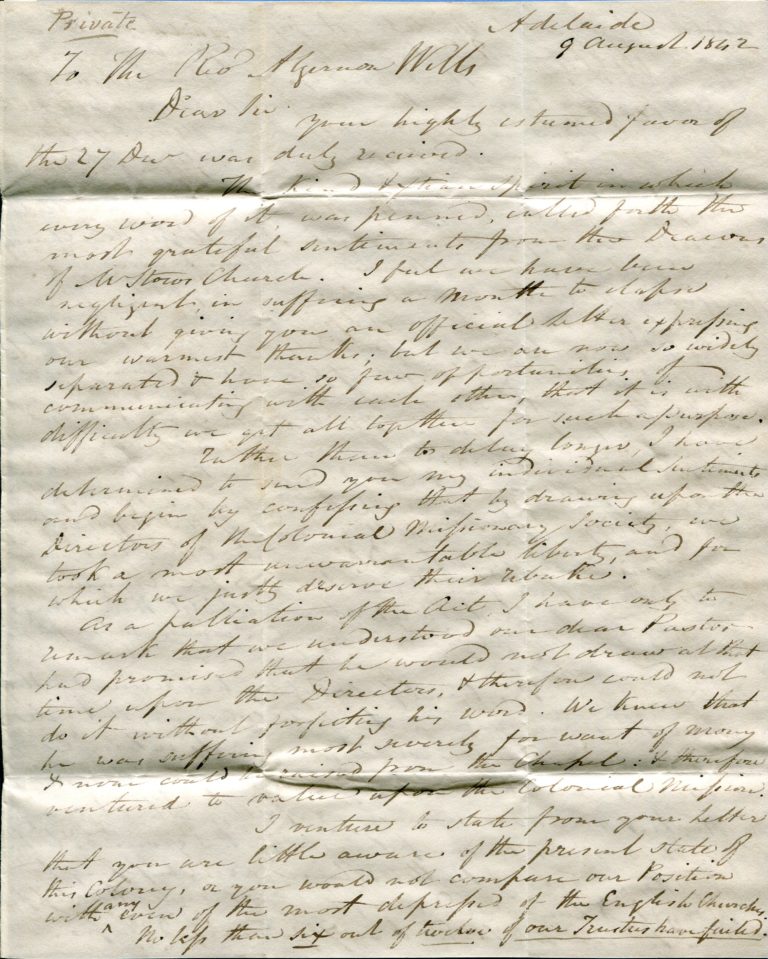 Private
Adelaide
9 August 1842
To The Revd Algernon Wells
Dear Sir
your highly esteemed favor of
the 27 Decr was duly received.
The kind Xtian spirit in which
every word of it, was penned, called forth the
most grateful sentiments from the Deacons
of Mr Stows Church. I feel we have been
negligent, in suffering a month to elapse
without giving you an official letter expressing
our warmest thanks; but we are now so widely
separated & have so few opportunities of
communicating with each other, that it is with
difficulty we get all together for such a purpose.
Rather than to delay longer, I have
determined to send you my individual sentiments
and begin by confessing that by drawing upon the
Directors of the Colonial Missionary Society, we
took a most unwarrantable liberty, and for
which we justly deserve their rebuke.
As a palliation of the Act, I have only to
remark that we understood our dear Pastor
had promised that he would not draw at that
time upon the Directors, & therefore could not
do it without forfeiting his word. We knew that
he was suffering most severely for want of money
& none could be raised from the Chapel: & therefore
ventured to value upon the Colonial Mission.
I venture to state from your letter
that you are little aware of the present state of
this Colony, or you would not compare our Position
with any even of the most depressed of the English Churches.
No less than six out of twelve of our Trustees have failed.